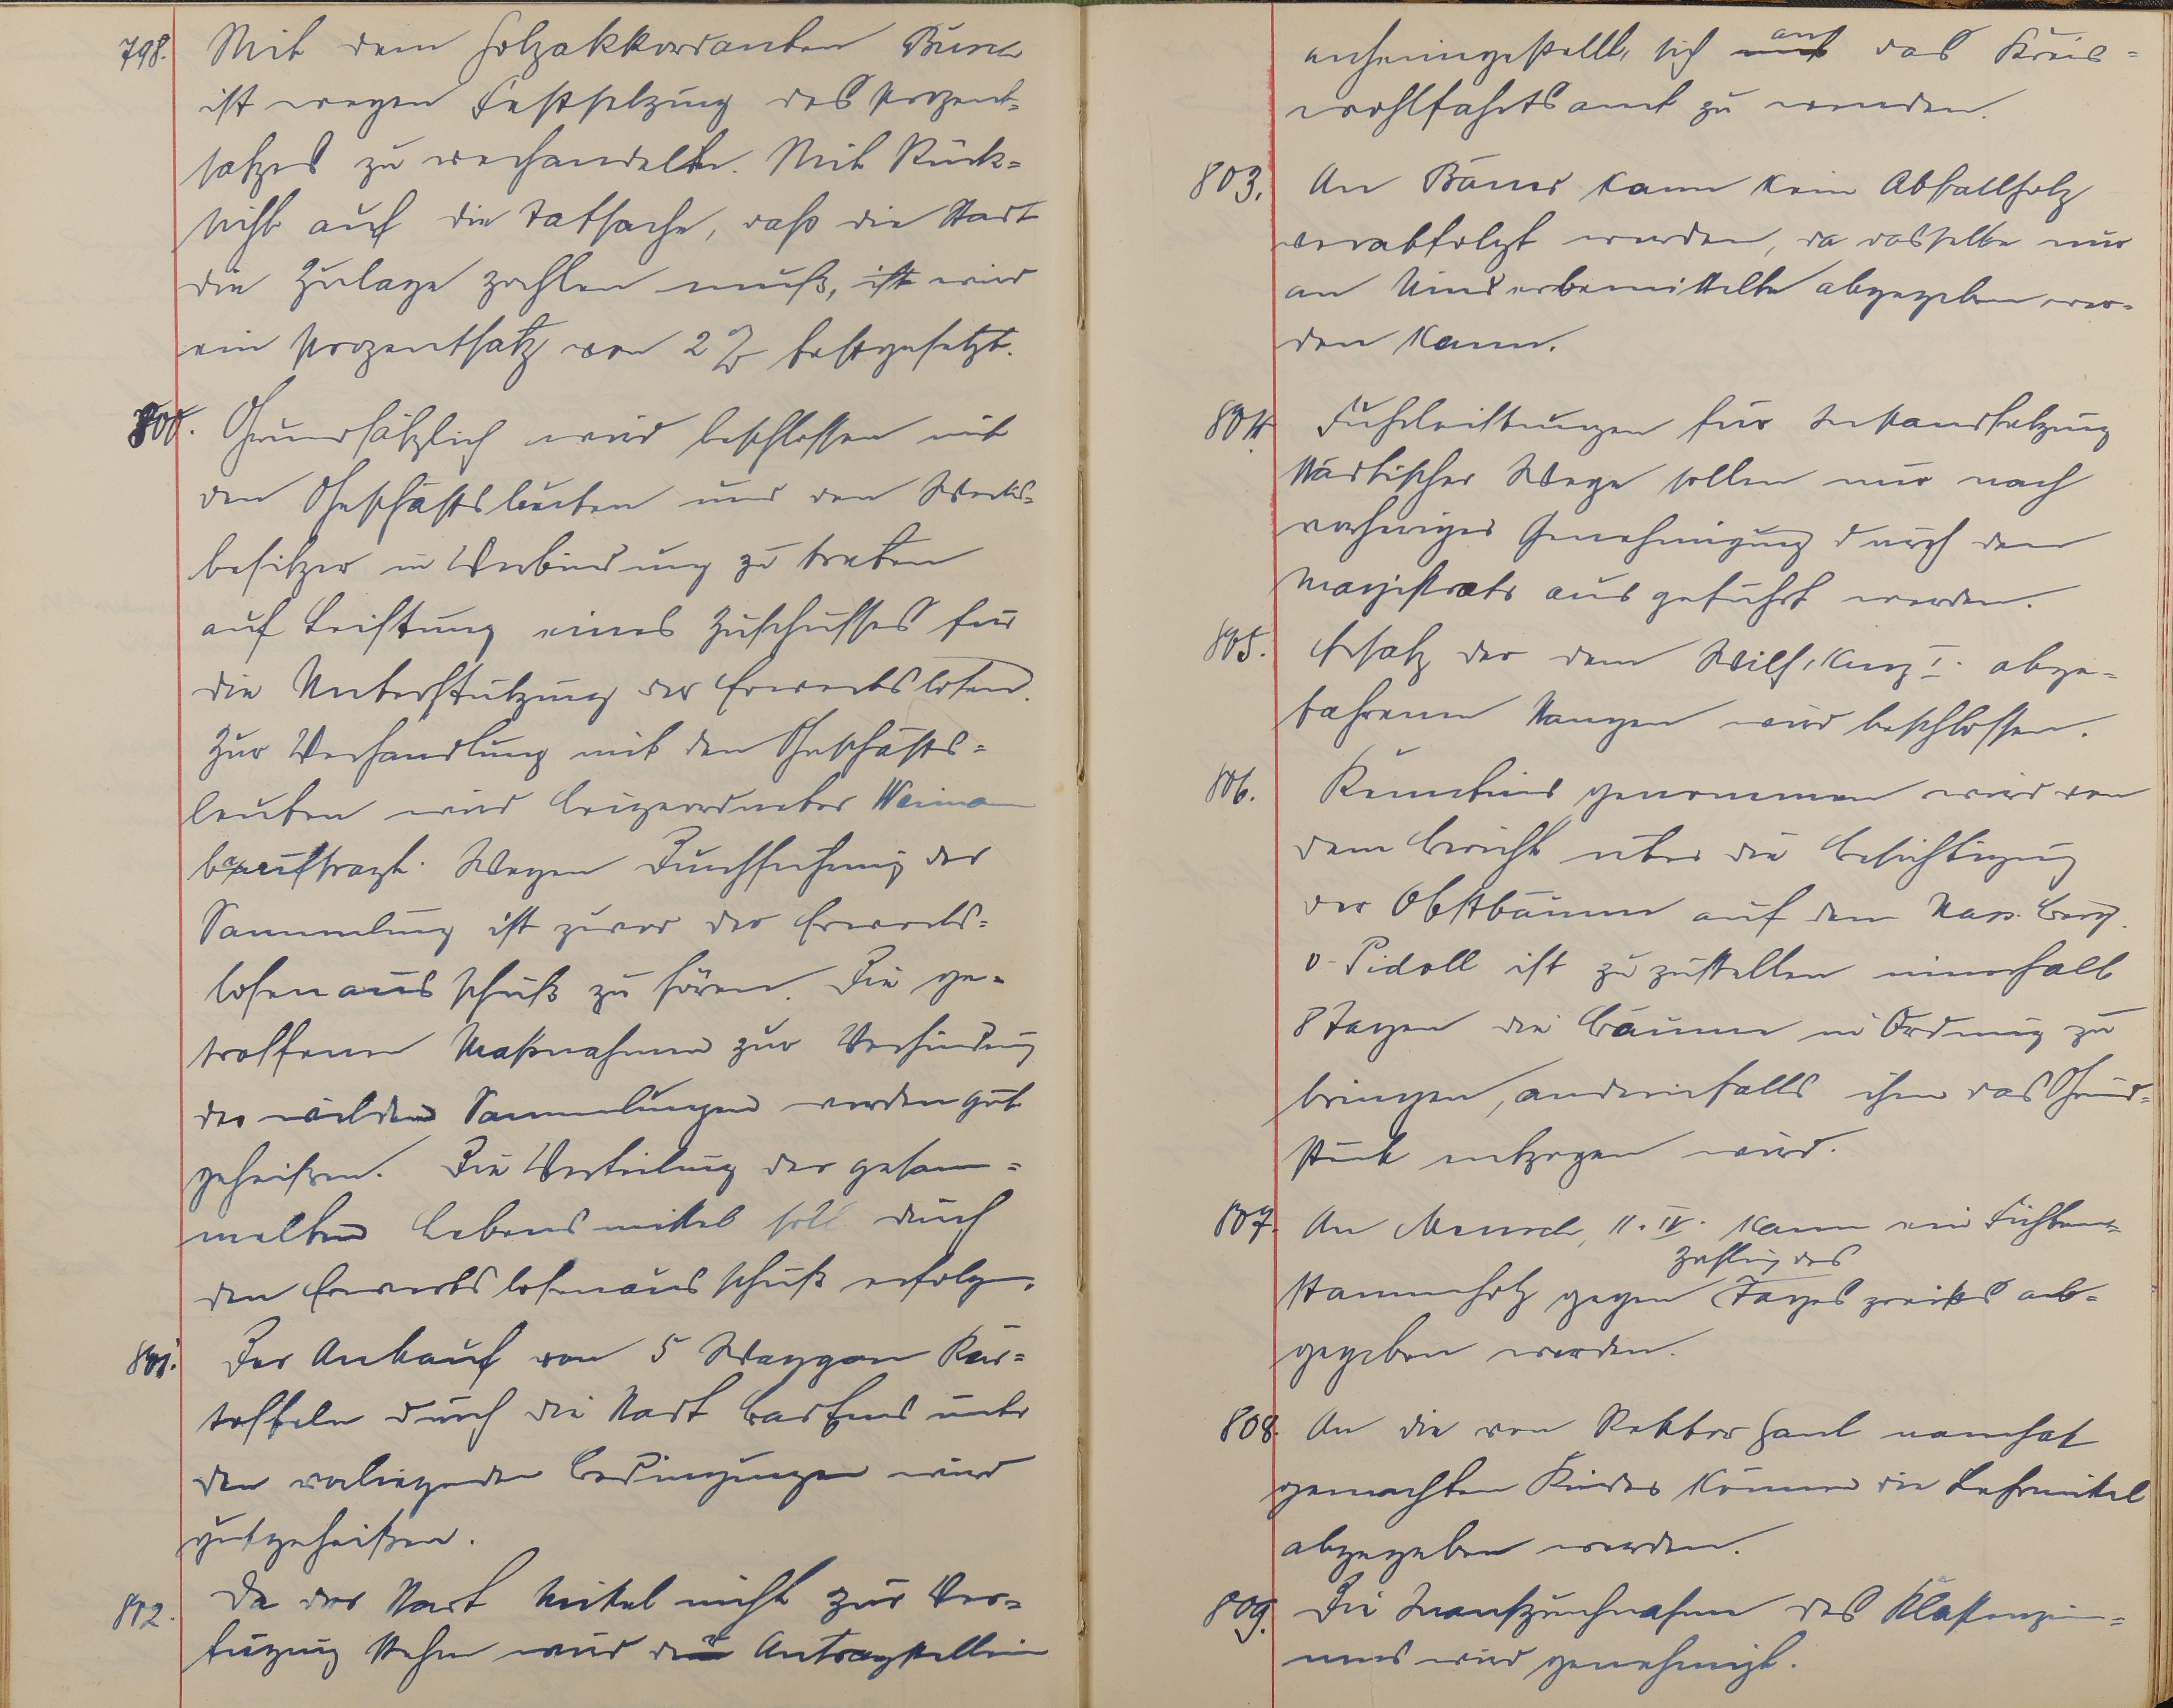 798. Mit dem Holzakkordanten Bund
ist wegen Festsetzung des Prozent-
satzes zu verhandeln. Mit Rück-
sicht auf die Tatsache, daß die Stadt
die Zulage zahlen muß, ist wird
ein Prozentsatz von 2 % festgesetzt.
800. Grundsätzlich wird beschlossen mit
den Geschäftsleuten und den Werks-
besitzer in Verbindung zu treten
auf Leistung eines Zuschusses für
die Unterstützung der Erwerbslosen.
Zur Verhandlung mit den Geschäfts-
leuten wird Beigeordneter Weimar
beauftragt. Wegen Durchführung der
Sammlung ist zuvor der Erwerbs-
losenausschuß zu hören. Die ge-
troffenen Maßnahmen zur Verhinderung
der wilden Sammlungen werden gut
geheißen. Die Verteilung der gesam-
melten Lebensmittel soll durch
den Erwerbslosenausschuß erfolgen.
801. Der Ankauf von 5 Waggon Kar-
toffeln durch die Stadt unter
den vorliegenden Bedingungen wird
gutgeheißen.
802. Da der Stadt Mittel nicht zur Ver-
fügung stehen wird der Antragstellerin
anheimgestellt, sich auf an das Kreis-
wohlfahrtsamt zu wenden.
803. An Bauer kann kein Abfallholz
verabfolgt werden, da dasselbe nur
an Minderbemittelte abgegeben wer-
den kann.
804. Fuhrleistungen für Instandsetzung
städtischer Wege sollen nur nach
vorheriger Genehmigung durch den
Magistrats ausgeführt werden.
805. Ersatz der dem Wilh. Kurz I. abge-
fahrenen Stangen wird beschlossen.
806. Kenntnis genommen wird von
dem Bericht über die Besichtigung
der Obstbäume auf dem Nass. Berg.
v. Pidoll ist zuzustellen innerhalb
8 Tagen die Bäume in Ordnung zu
bringen, andernfalls ihm das Grund-
stück entzogen wird.
807. An Mensch, II. IV. kann ein Fichten-
Zahlung des
stammholz gegen Tagespreises ab-
gegeben werden.
808. An die von Rektor namhaft
gemachten Kinder können die Lehrmittel
abgegeben werden.
809. Die Inanspruchnahme des Klassenzim-
mers wird genehmigt.